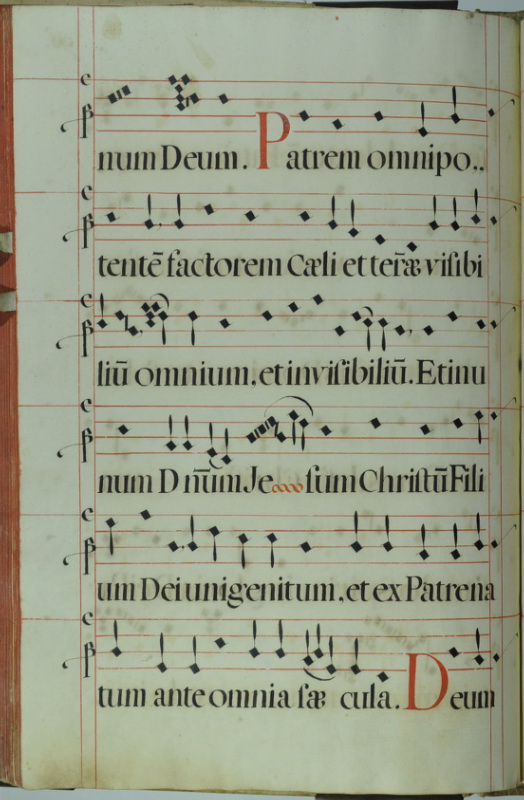 num Deum. Patrem omnipo..
tentē factorem Cæli et terr̄æ visibi
liū omnium, et invisibiliū. Et inu
num D nūm Je sum Christū Fili
um Dei unigenitum, et ex Patre na
tum ante omnia sæ cula. Deum